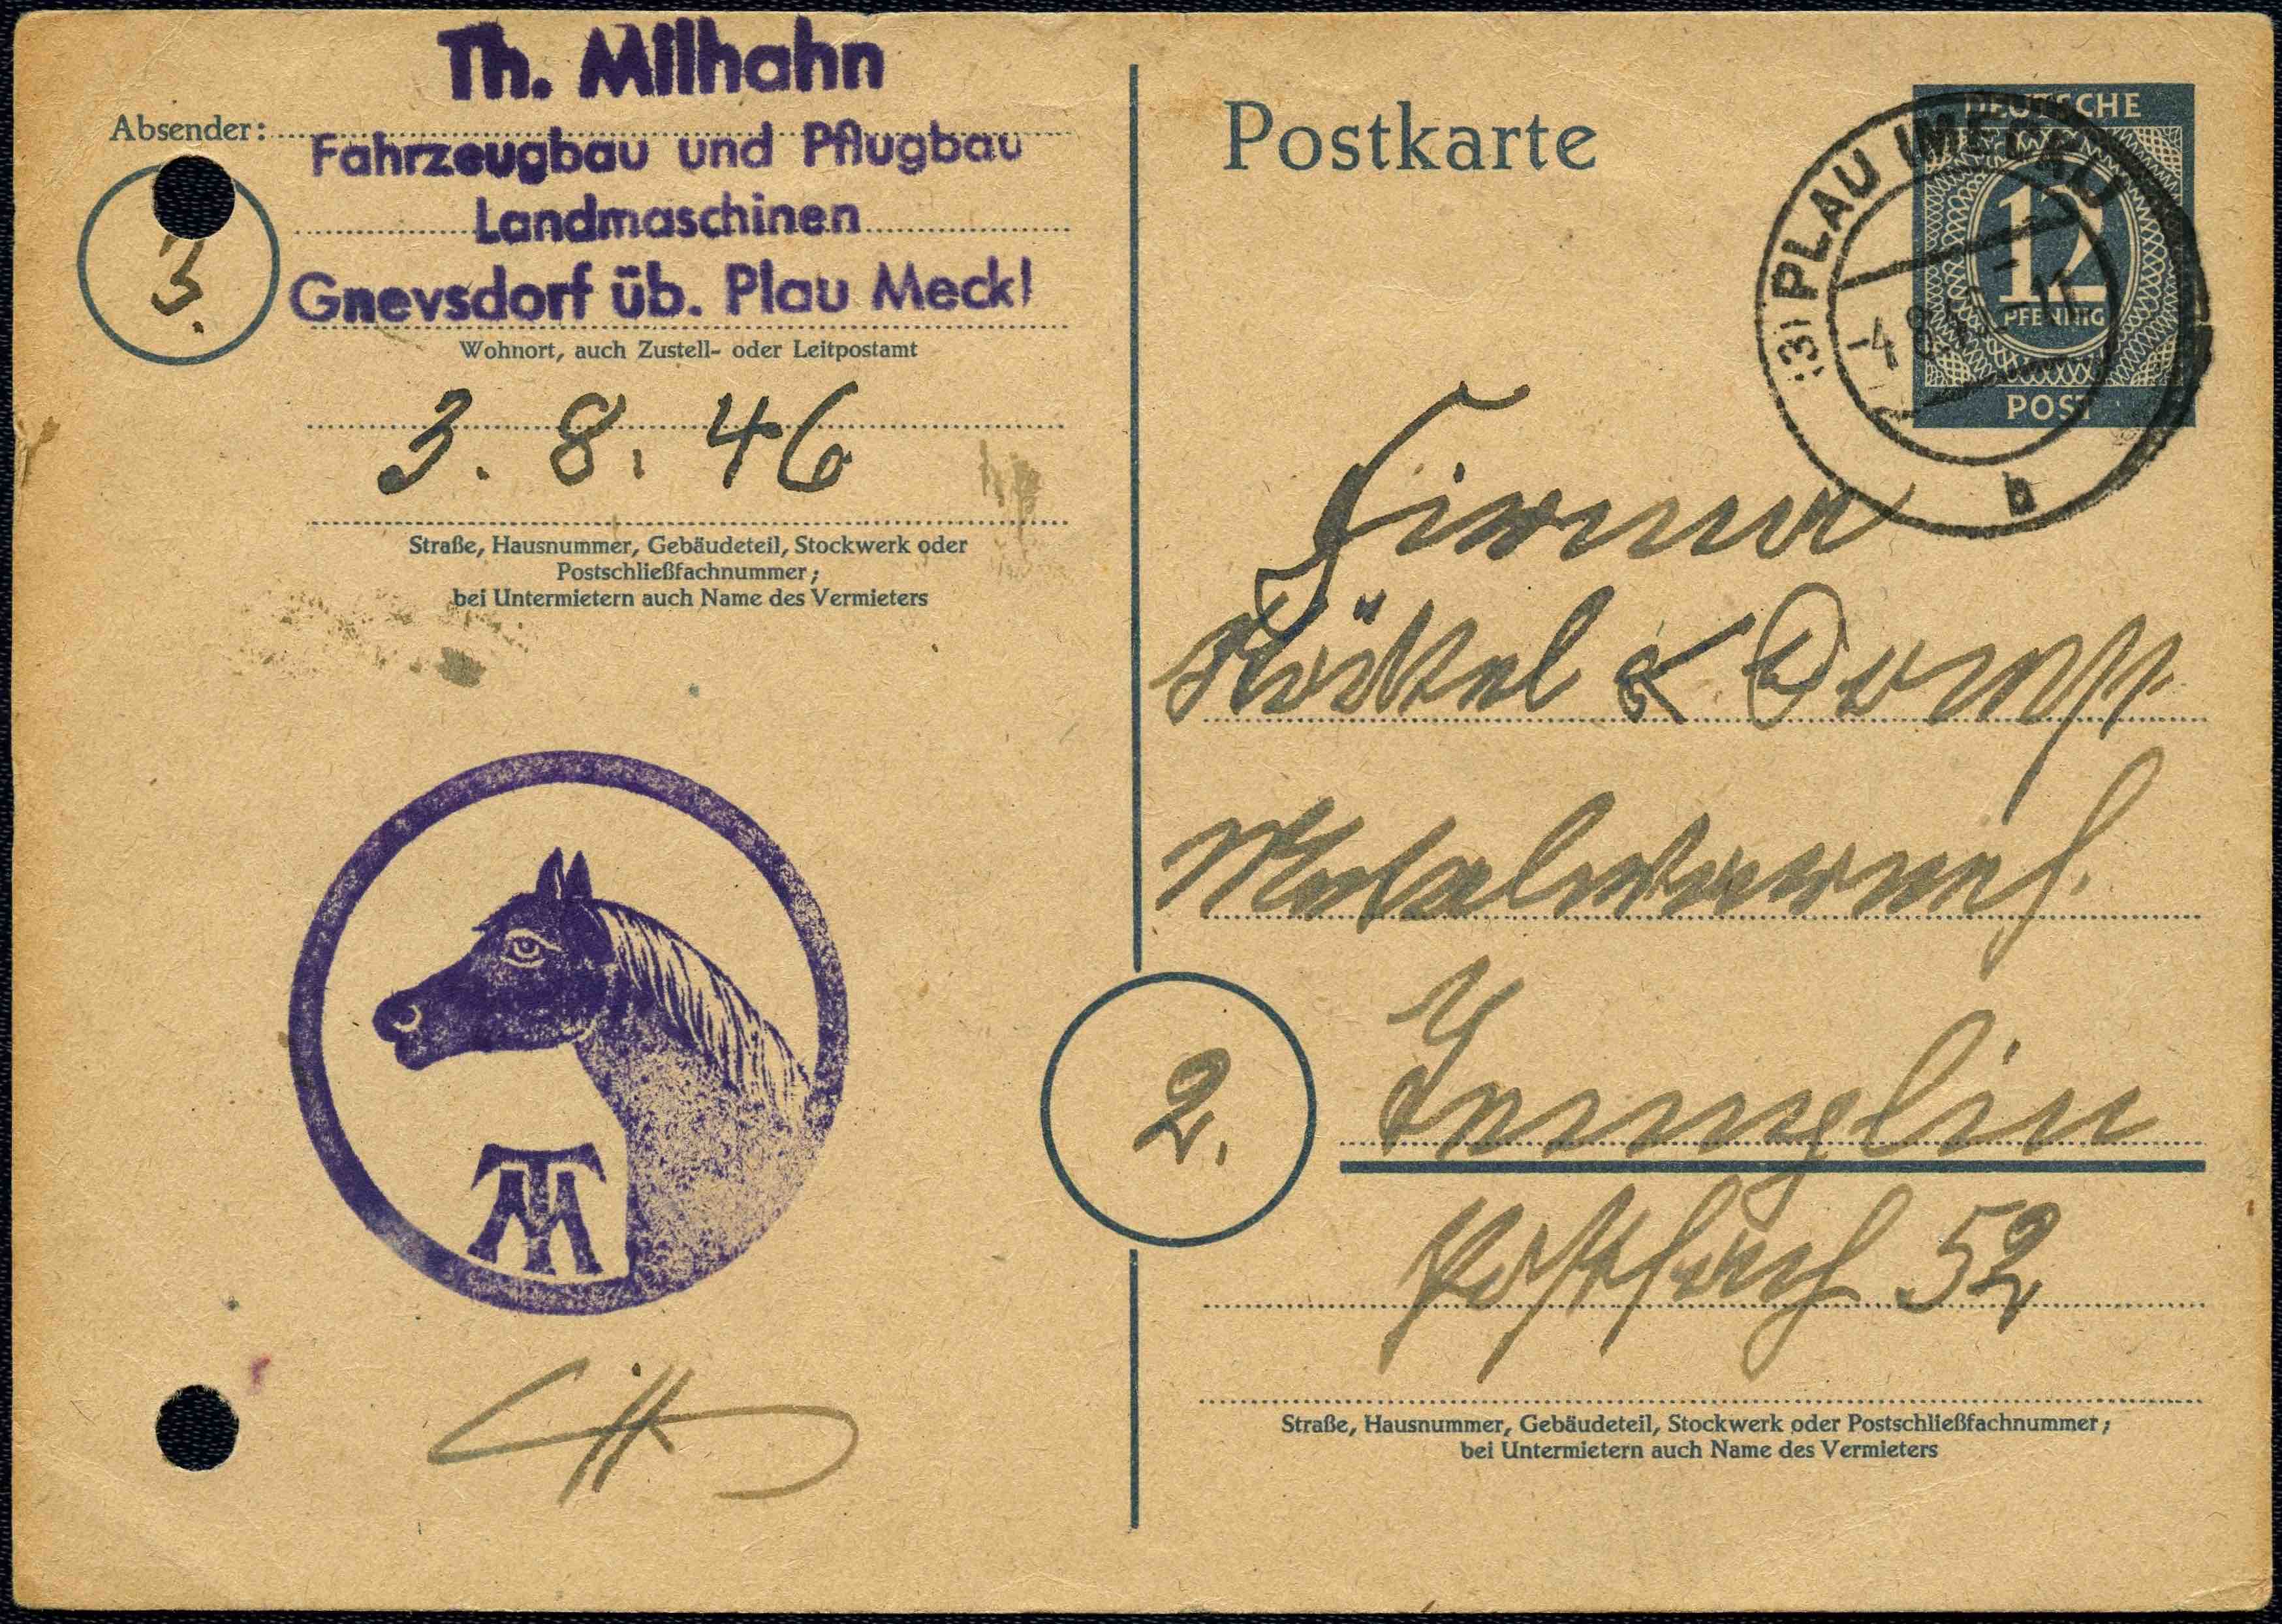 Th. Milhahn
Absender:
Fahrzeugbau und Pflugbau
Landmaschinen
3.
Gnevsdorf üb. Plau Meckl
Wohnort, auch Zustell- oder Leitpostamt
3. 8. 46
Straße, Hausnummer, Gebäudeteil, Stockwerk oder
Postschließfachnummer;
bei Untermietern auch Name des Vermieters
TM
Postkarte
DEUTSCHE
12
PFENNIG
POST
(3) PLAU (MECKL)
b
Firma
&
2.
Postfach 52
Straße, Hausnummer, Gebäudeteil, Stockwerk oder Postschließfachnummer;
bei Untermietern auch Name des Vermieters